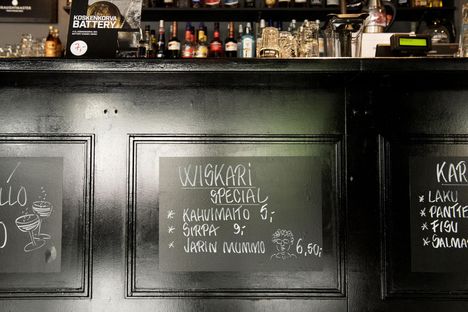 KOSKENKORVA
BATTERY
LLÓ
O
WISKARI
SPECIAL
* KAHVIMAITO 5,-
* SIRPA 9,-
* JARIN MUMMO 6,50,-
KAR
* LAKU
* PANTTE
* FISU
* SALMA